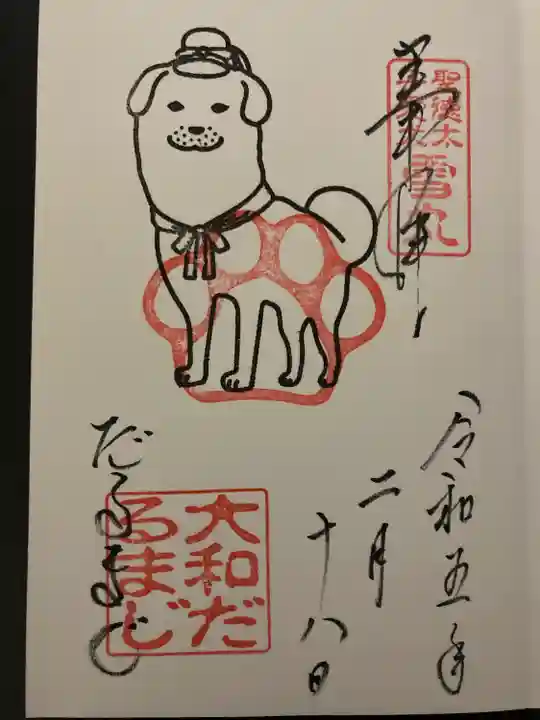 奉拝
聖徳太
雪丸
令和五年
二月
十八日
だるまじ
大和だ
るまじ